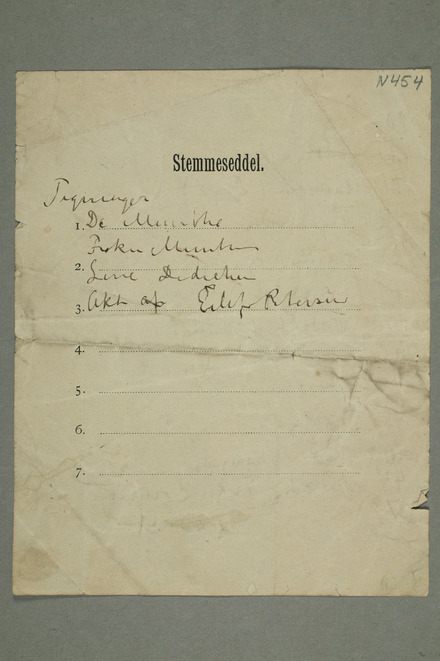 N454
Stemmeseddel.
Tegninger
1. De Munthe
Frøken Munthe
2.
3. Akt af Eilif Petersen
4.
5.
6.
7.